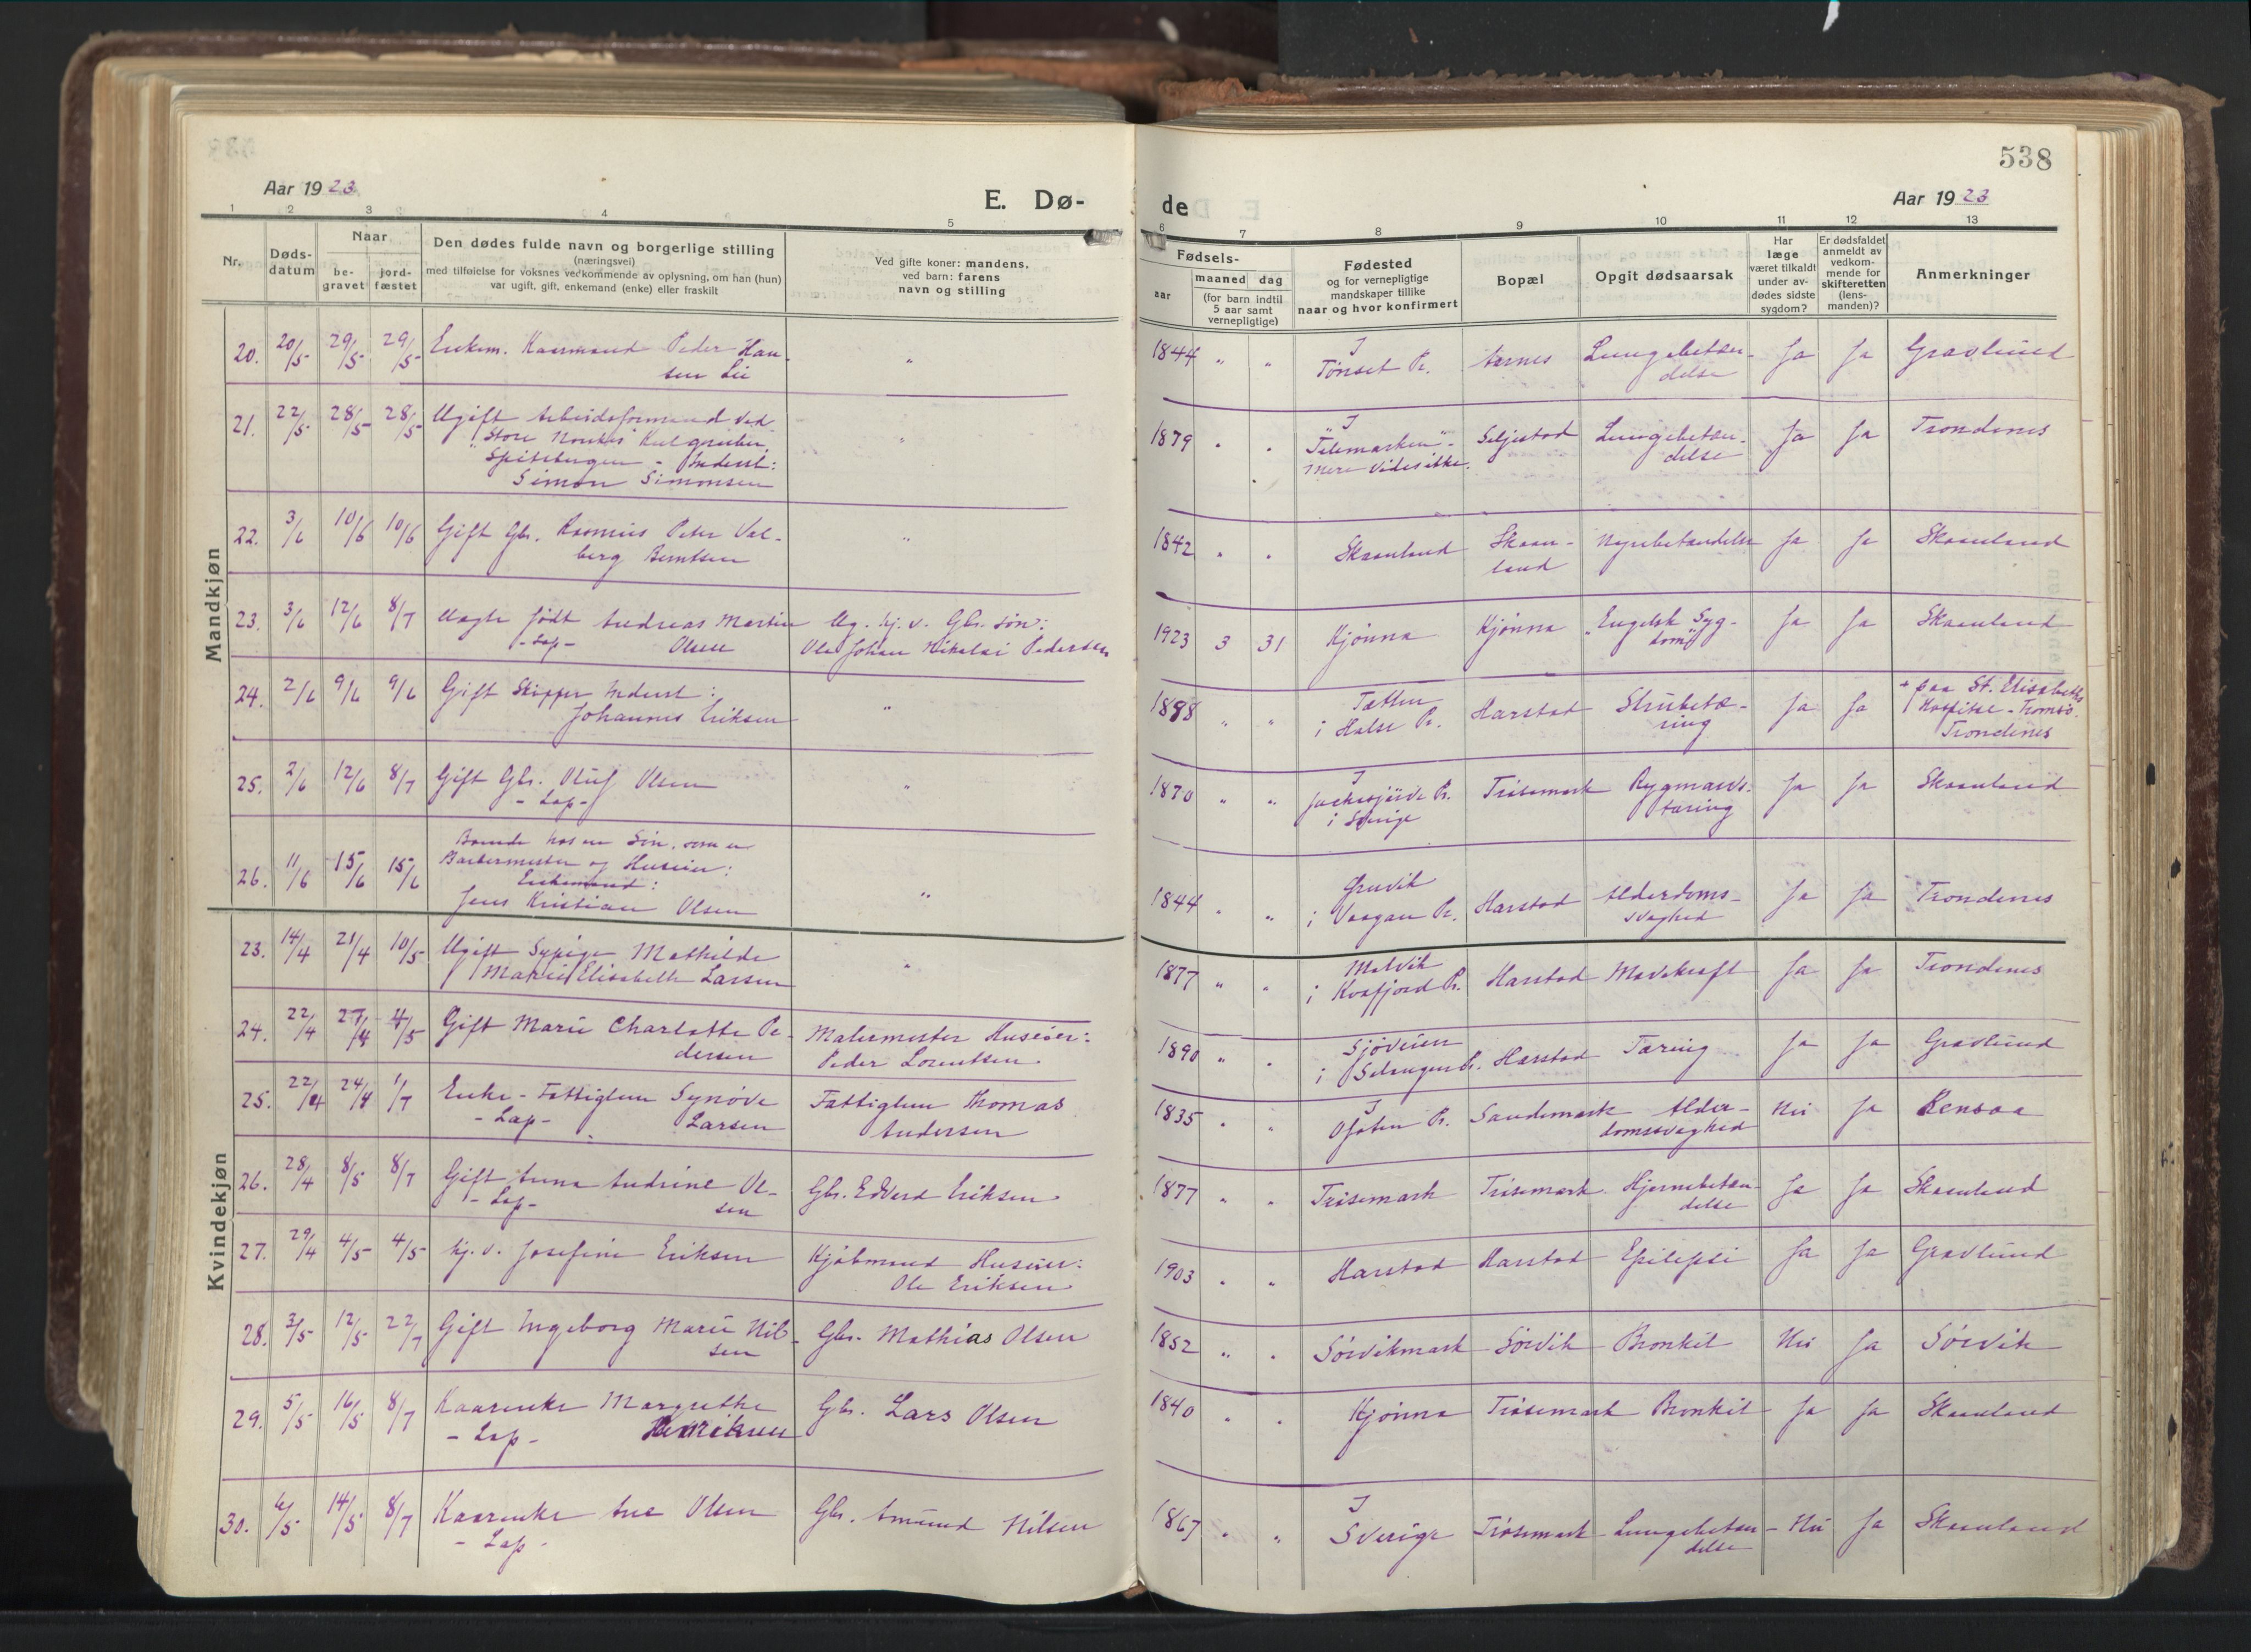 538
Aar 1923
E. Dø-
de
Aar 1923
1 2 3 4 5 6 7 8 9 10 11 12 13
Nr.
Døds-
datum
Naar
be-
gravet
jord-
fæstet
Den dødes fulde navn og borgerlige stilling
(næringsvei)
med tilføielse for voksnes vedkommende av oplysning, om han (hun)
var ugift, gift, enkemand (enke) eller fraskilt
Ved gifte koner: mandens,
ved barn: farens
navn og stilling
Fødsels-
aar
maaned dag
(for barn indtil
5 aar samt
vernepligtige)
Fødested
og for vernepligtige
mandskaper tillike
naar og hvor konfirmert
Bopæl
Opgit dødsaarsak
Har
læge
været tilkaldt
under av-
dødes sidste
sygdom?
Er dødsfaldet
anmeldt av
vedkom-
mende for
skifteretten
(lens-
manden)?
Anmerkninger
Mandkjøn
20. 20/5 29/5 29/5 Enkem. Kaarmand Peder Han-
sen Lie
" 1844 " " I
Tønset Pr.
Aarnes Lungebetæn-
delse
Ja Ja Gravlund
21. 22/5 28/5 28/5 Ugift Arbeidsformand ved
"Store Norskes Kulgruber"
Spitsbergen - Inderst:
Simon Simonsen
" 1879 " " I
"Telemarken" -
mere vides ikke.
Seljestad Lungebetæn-
delse
Ja Ja Trondenes
22. 3/6 10/6 10/6 Gift Gbr. Rasmus Peter Val-
berg Berntsen
" 1842 " " Skaanland Skaan-
land
Nyrebetændelse Ja Ja Skaanland
23. 3/6 12/6 8/7 Uægte født Andreas Martin
- Lap - Olsen
Ug. hj. v. Gbr. søn:
Ole Johan Nikolai Pedersen
1923 3 31 Kjønna Kjønna "Engelsk Syg-
dom"
Ja Ja Skaanland
24. 2/6 9/6 9/6 Gift Skipper Inderst:
Johannes Eriksen
" 1888 " "
i Halse Pr.
Harstad Strubetæ-
ring
Ja Ja + paa St. Elisabeths
Hospital - Tromsø.
Trondenes
25. 2/6 12/6 8/7 Gift Gbr. Oluf Olsen
- Lap -
" 1870 " " I
Juckasjärvi Pr.
i Sverige
Trøsemark Rygmarvs-
tæring
Ja Ja Skaanland
26. 11/6 15/6 15/6 Boende hos en Søn, som er
Barbermester og Huseier:
Enkemand:
Jens Kristian Olsen
" 1844 " "
i Vaagan Pr.
Harstad Alderdoms-
svaghed
Ja Ja Trondenes
Kvindekjøn
23. 14/4 21/4 10/5 Ugift Sypige Mathilde
Marie Elisabeth Larsen
" 1877 " " Melvik
i Kvæfjord Pr.
Harstad Mavekræft Ja Ja Trondenes
24. 22/4 27/4 4/5 Gift Marie Charlotte Pe-
dersen
Malermester Huseier:
Peder Lorentsen.
1890 " " Sjøveien
i Salangen Pr.
Harstad Tæring Ja Ja Gravlund
25. 22/4 24/4 1/7 Enke - Fattiglem Synøve
- Lap - Larsen
Fattiglem Thomas
Andersen
1835 " " I
Ofoten Pr.
Sandemark Alder-
domssvaghed
Nei Ja Rensaa
26. 28/4 8/5 8/7 Gift Anna Andrine Ol-
- Lap - sen
Gbr. Edvard Eriksen.
1877 " " Trøsemark Trøsemark Hjernebetæn-
delse
Ja Ja Skaanland
27. 29/4 4/5 4/5 hj. v. Josefine Eriksen Kjøbmand Huseier:
Ole Eriksen
1903 " " Harstad Harstad Epilepsi Ja Ja Gravlund
28. 3/5 12/5 22/7 Gift Ingeborg Marie Nil-
sen
Gbr. Mathias Olsen
1852 " " Sørvikmark Sørvik Bronkit Nei Ja Sørvik
29. 5/5 16/5 8/7 Kaarenke Margrethe
- Lap - Henriksen
Gbr. Lars Olsen
1840 " " Kjønna Trøsemark Bronkit Ja Ja Skaanland
30. 6/5 14/5 8/7 Kaarenke Ane Olsen
- Lap -
Gbr. Amund Nilsen
1867 " " I
Sverige
Trøsemark Lungebetæn-
delse
Nei Ja Skaanland